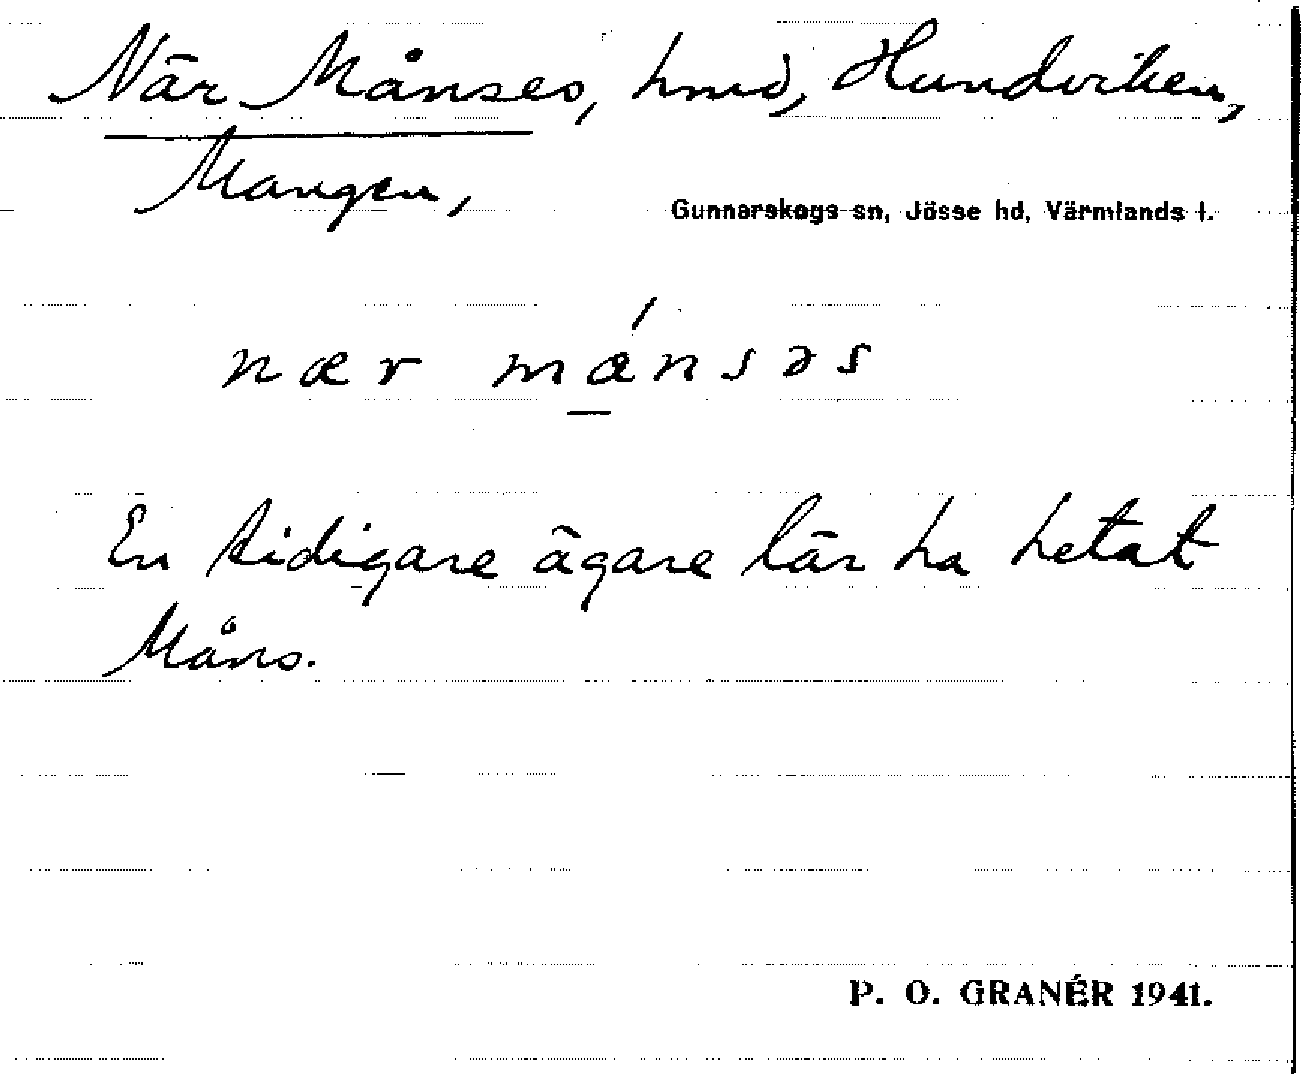 När Månses, hmd, Hundviken,
Mangen,
Gunnarskogs sn, Jösse hd, Värmlands l.
nær mánsəs
En tidigare ägare lär ha hetat
Måns.
P. O. GRANÉR 1941.